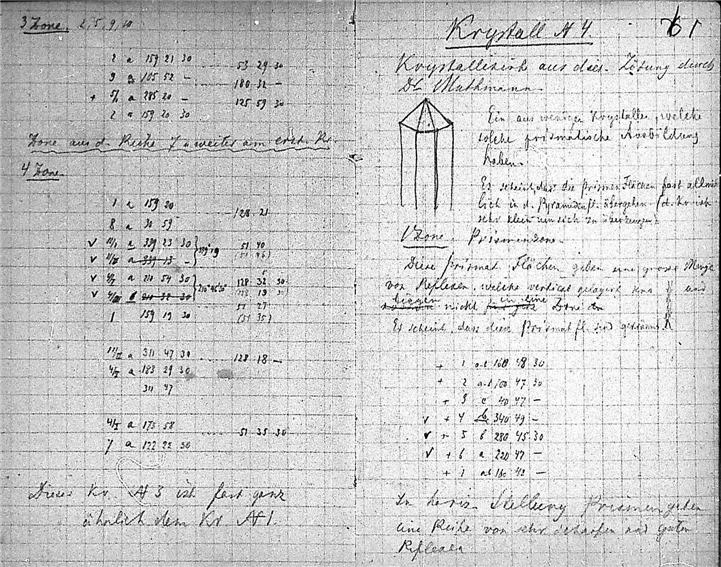 3 Zone. 2, 5, 9, 10
2 a 159 21 30
53 29 30
9 a 105 52 –
180 32 –
+ 5/1 a 285 20 –
125 59 30
2 a 159 20 30
Zone aus d. Reihe 7 u weiter am erst. Kr.
4 Zone.
1 a 159 30
128 21
8 a 30 59
v a 339 23 30
51 40
v a 339 13 –
v a 210 54 30
128 32 30
v
51 27
1 159 19 30
(51 35)
a 311 47 30
128 18 –
a 183 29 30
311 47
a 173 58
51 35 30
7 a 122 22 30
Dieses Kr. N 3 ist fast ganz
ähnlich dem Kr N 1.
61
Krystall N 4.
Krystallisirt aus der Lösung durch
Dr. Muthmann.
Ein aus wenigen Krystallen, welche
solche prismatische Ausbildung
haben.
Es scheint, dass die prismen Flächen fast allmäh
lich in d. Pyramidenfl. übergehen (d. Kr ist
sehr klein um sich zu überzeugen)
1 Zone. Prismenzone.
Diese prismat. Flächen geben eine grosse Menge
von Reflexen, welche vertical gelagert sind und
liegen nicht in eine Zone
Es scheint, dass diese Prismatfl. sind gekrümmt.
+ 1 160 48 30
+ 2 100 47 30
+ 3 c 40 47 –
v + 4 b 340 49 –
v + 5 b 280 45 30
v + 6 a 220 47 –
+ 1 ab 160 49 –
In horiz. Stellung Prismen geben
eine Reihe von sehr scharfen und guten
Reflexen